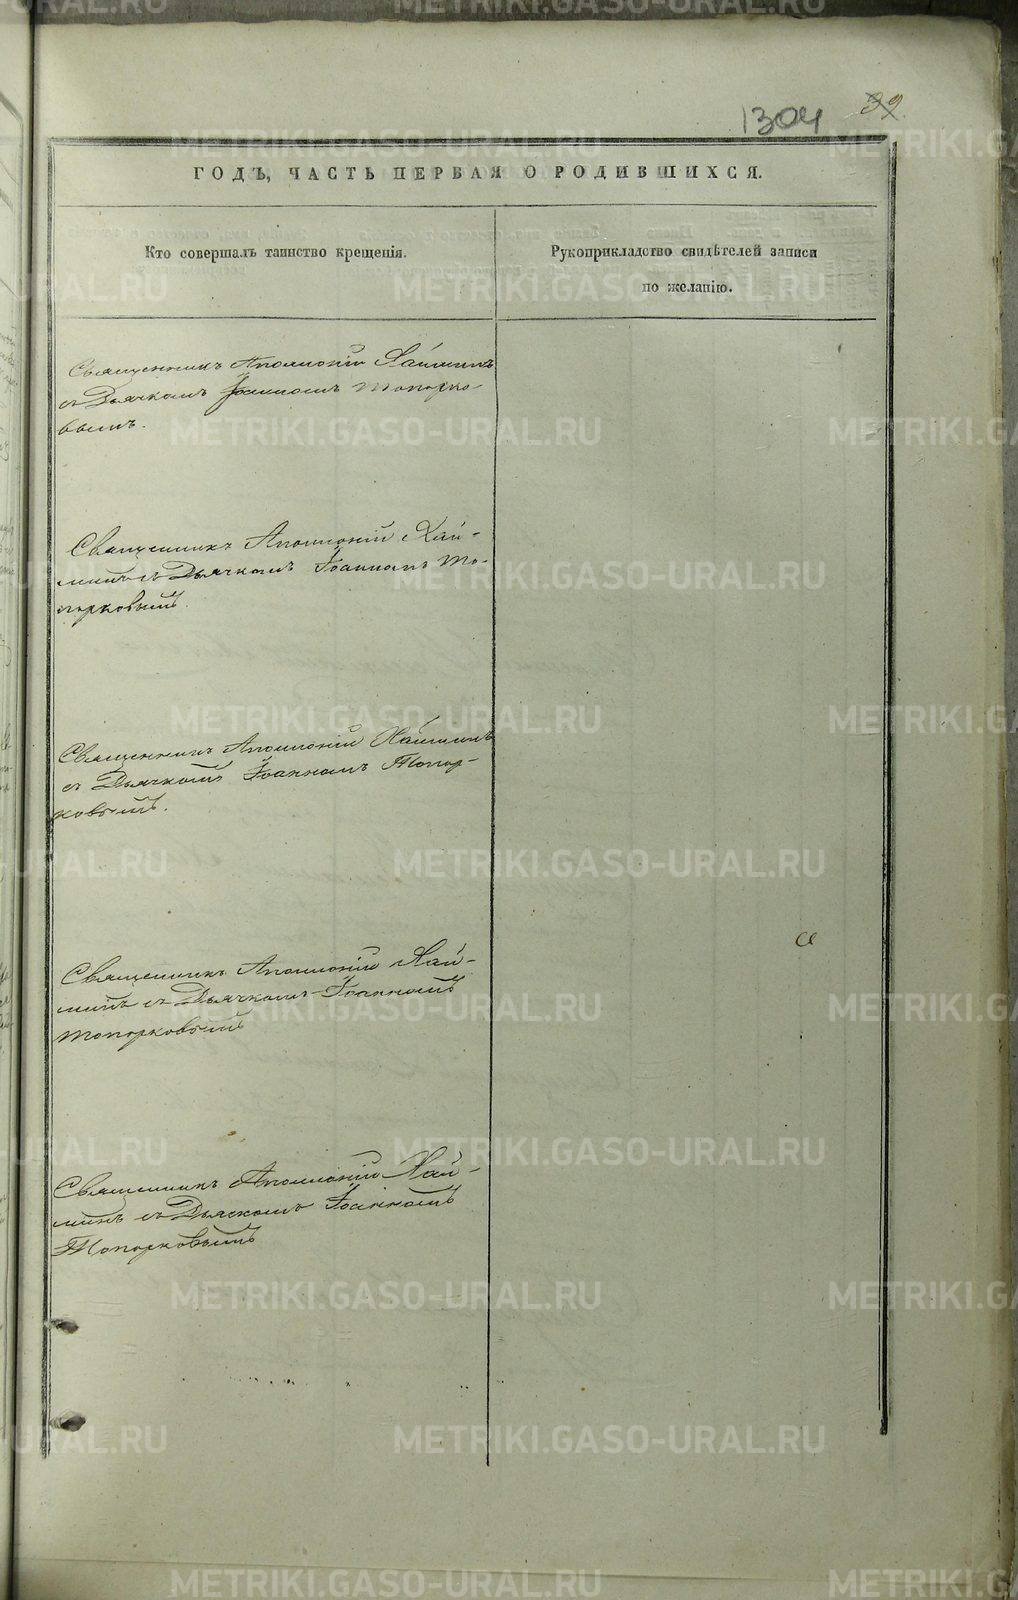 1304
39
ГОДЪ, ЧАСТЬ ПЕРВАЯ О РОДИВШИХСЯ.
Кто совершалъ таинство крещенія.
Рукоприкладство свидѣтелей записи
по желанію.
Священникъ Аполлоній Хайминъ
съ Дьячкомъ Іоанномъ Топорко-
вымъ.
Священникъ Аполлоній Хай-
минъ съ Дьячкомъ Іоанномъ То-
порковымъ.
Священникъ Аполлоній Хайминъ
съ Дьячкомъ Іоанномъ Топор-
ковымъ.
Священникъ Аполлоній Хай-
минъ съ Дьячкомъ Іоанномъ
Топорковымъ
Священникъ Аполлоній Хай-
минъ съ Дьячкомъ Іоанномъ
Топорковымъ
METRIKI.GASO-URAL.RU